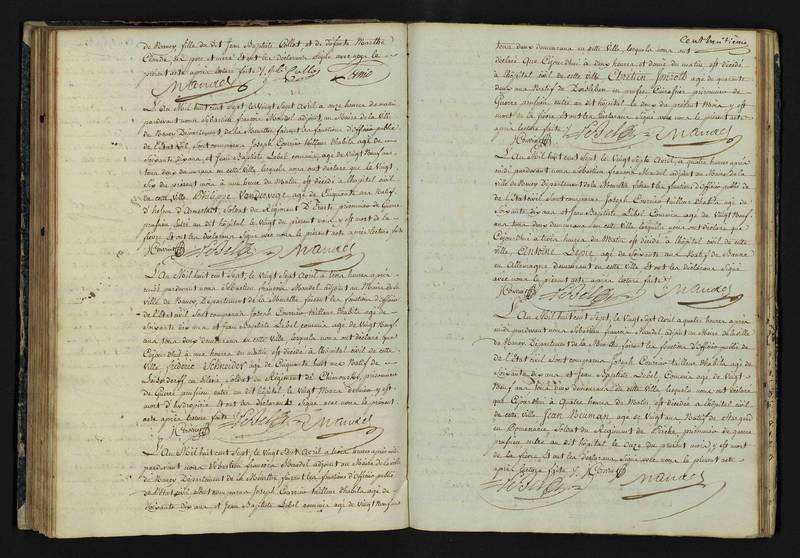 de Nancy fille du dit Jean Baptiste Collot et de défunte Marthe
Claude ses pere et mere et ont les déclarans signé avec nous le
présent acte après lecture faite
Mandel
L'An Mil huit cent Sept, le Vingt Sept Avril a onze heures du matin
pardevant nous Sébastien françois Mandel adjoint au Maire de la Ville
de Nancy Département de la Meurthe faisant les fonctions d'Officier public
de l'Etat civil, sont comparus Joseph Couvrier tailleur d'habits agé de
soixante dix ans, et Jean Baptiste Lebel, commis, agé de Vingt Neuf ans,
tous deux demeurans en cette Ville, lesquels nous ont déclaré que le Vingt
Six du présent mois à une heure du Matin, est décédé à l'hôpital civil
de cette Ville, Philippe agé de Cinquante ans Natif
Soldat du Régiment prisonnier de Guerre
prussien, entré au dit hôpital le Vingt du présent mois, y est mort de la
fievre, et ont les déclarans Signé avec nous le présent acte après lecture faite
J Couvrier Lebel Mandel
L'An Mil huit cent Sept, le Vingt Sept Avril à trois heures après
midi pardevant nous Sébastien françois Mandel adjoint au Maire de la
Ville de Nancy, Département de la Meurthe, faisant les fonctions d'officier
de l'Etat civil sont comparus Joseph Couvrier tailleur d'habits agé de
Soixante dix ans, et Jean Baptiste Lebel commis, agé de Vingt Neuf
ans, tous deux demeurans en cette Ville, lesquels nous ont déclaré que
Cejourd'hui à une heure du matin est décédé à l'hôpital civil de cette
Ville, Schneider agé de Cinquante huit ans Natif de
en Soldat du Régiment de prisonnier
de Guerre prussien entré au dit hôpital, le Vingt Mars dernier y est
mort d'hydropisie et ont les déclarans Signé avec nous le présent
acte après lecture faite
J Couvrier Lebel Mandel
L'An Mil huit cent Sept, le Vingt Sept Avril à trois heures après midi
pardevant nous Sébastien françois Mandel adjoint au Maire de la Ville
de Nancy, Département de la Meurthe faisant les fonctions d'Officier public
de l'Etat civil, sont comparus Joseph Couvrier tailleur d'habits agé de
Soixante dix ans et Jean Baptiste Lebel commis agé de Vingt Neuf ans
Cent huitième
tous deux demeurans en cette Ville, lesquels nous ont
déclaré Que Cejourd'hui à deux heures et demie du matin est décédé
à l'hôpital civil de cette Ville Chretien agé de quarante
deux ans Natif de en prisonnier de
Guerre prussien, entré au dit hôpital le deux du présent Mois y est
mort de la fievre, et ont les déclarans Signé avec nous le présent acte
après lecture faite
J Couvrier Lebel Mandel
L'An Mil huit cent Sept, le Vingt Sept Avril, à quatre heures après
midi, pardevant nous Sébastien françois Mandel adjoint au Maire de la
Ville de Nancy Département de la Meurthe, faisant les fonctions d'Officier public de
de l'Etat civil sont comparus Joseph Couvrier tailleur d'habits agé de
Soixante dix ans et Jean Baptiste Lebel Commis agé de Vingt Neuf
ans tous deux demeurans en cette Ville lesquels nous ont déclaré que
Cejourd'hui à trois heures du Matin est décédé à l'hôpital civil de cette
Ville, Antoine agé de soixante ans Natif de
en Allemagne demeurant en cette Ville et ont les déclarans Signé
avec nous le présent acte après lecture faite
J Couvrier Lebel Mandel
L'An Mil huit cent Sept, le Vingt Sept Avril à quatre heures après
midi pardevant nous Sébastien françois Mandel adjoint au Maire de la Ville
de Nancy, Département de la Meurthe faisant les fonctions d'Officier public de
de l'Etat civil sont comparus Joseph Couvrier tailleur d'habits agé de
Soixante dix ans et Jean Baptiste Lebel Commis agé de Vingt
Neuf ans tous deux demeurans en cette Ville, lesquels nous ont déclaré
que Cejourd'hui à Quatre heures du Matin est décédé à l'hôpital civil
de cette Ville, Jean agé de Vingt ans Natif de
en Soldat du Régiment de prisonnier de guerre
prussien entré au dit hôpital le Onze du présent mois, y est mort
de la fievre et ont les déclarans Signé avec nous le présent acte
après lecture faite J Couvrier
Lebel Mandel